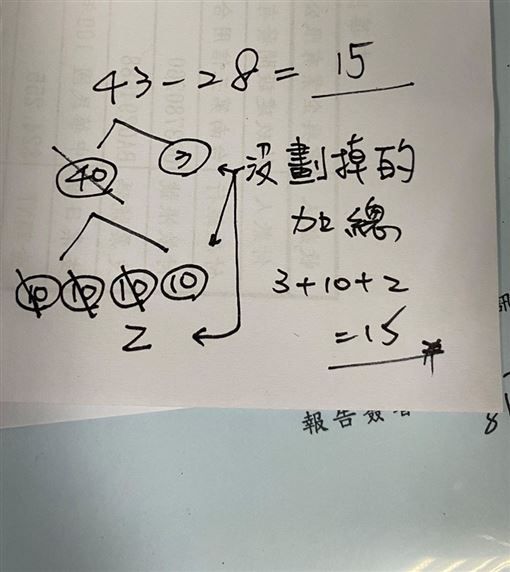 43-28=15
40 3
沒劃掉的
加總
10 10 10 10
3+10+2
2
=15
報告簽署